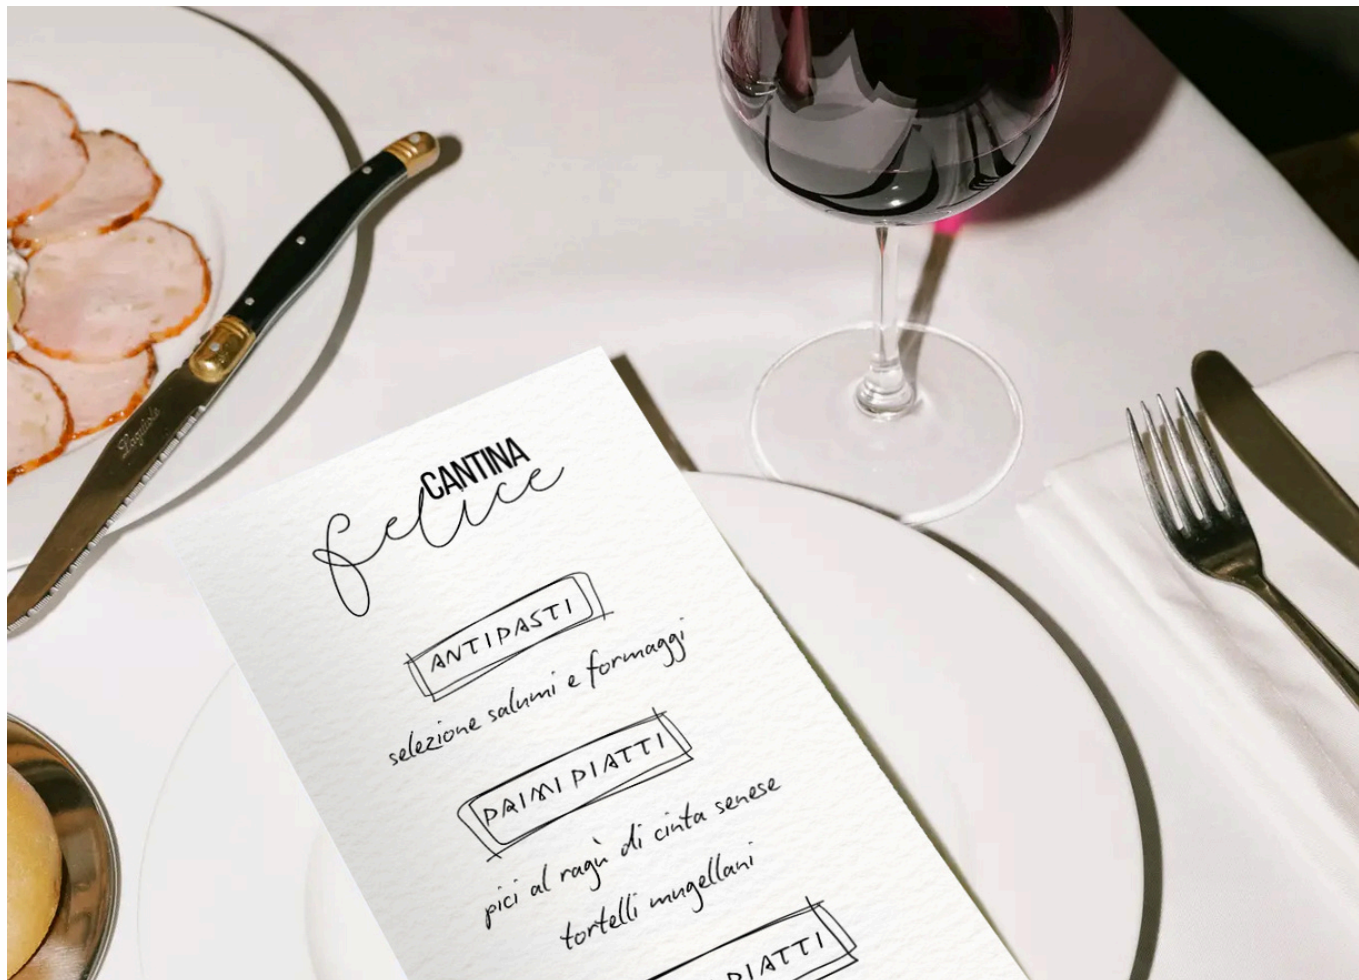 CANTINA
felice
ANTIPASTI
selezione salumi e formaggi
PRIMI PIATTI
pici al ragù di cinta senese
tortelli mugellani
PIATTI
Laguiole